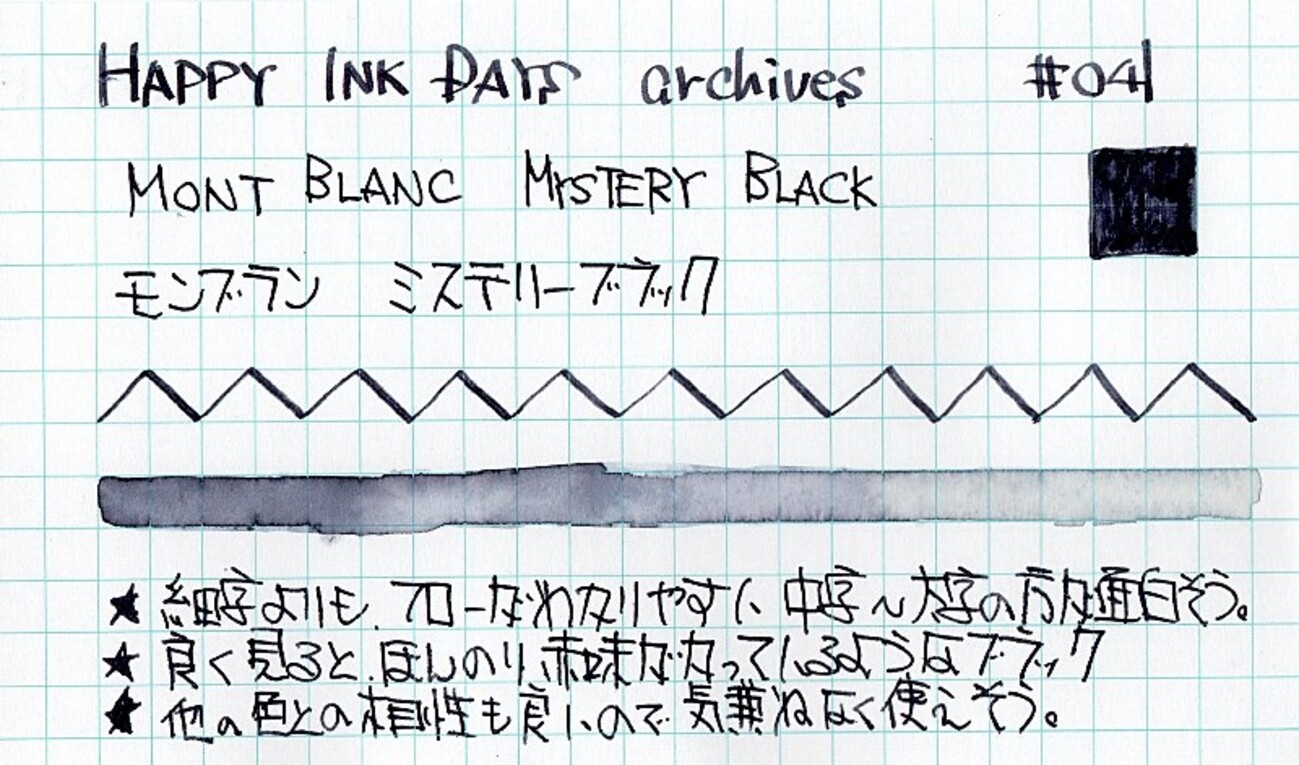 HAPPY INK DAYS archives #041
MONT BLANC MYSTERY BLACK
モンブラン ミステリーブラック
★ 細字よりも、フローがわかりやすく、中字〜太字の方が面白そう。
★ 良く見ると、ほんのり、赤味がかっているようなブラック
★ 他の色との相性も良いので気兼ねなく使えそう。